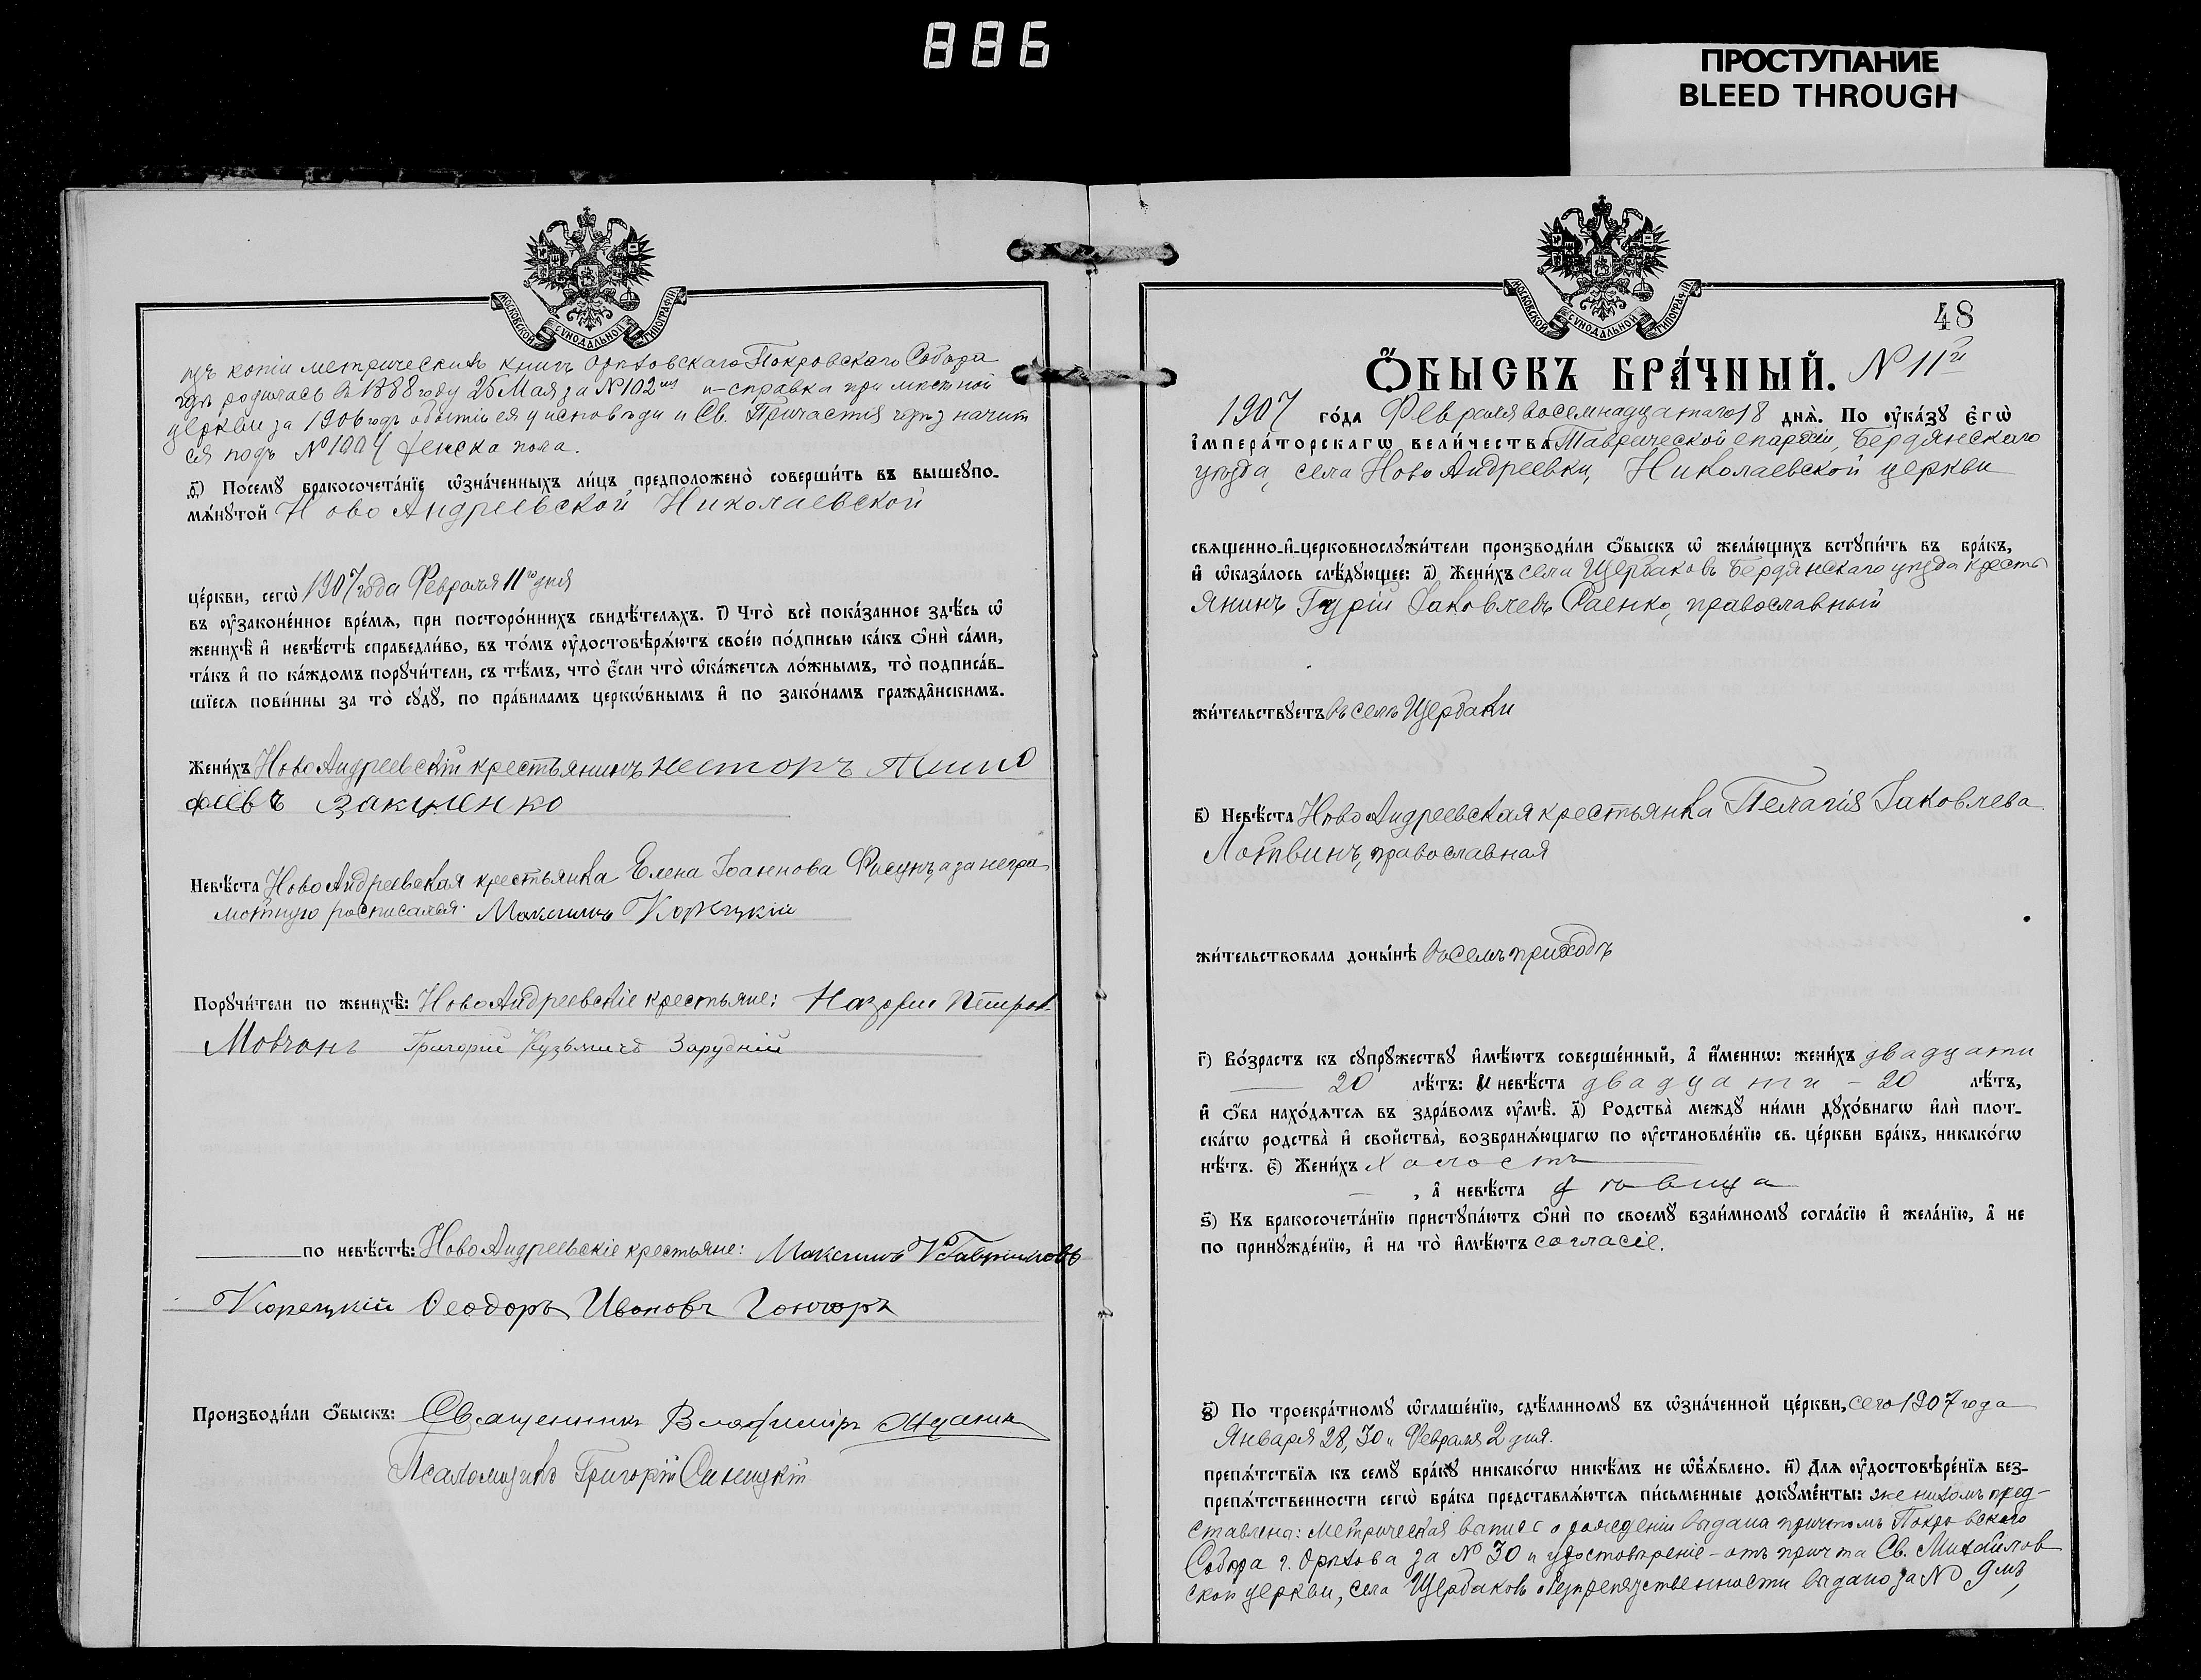 886
ПРОСТУПАНИЕ
BLEED THROUGH
МОСКОВСКОЙ СѴНОДАЛЬНОЙ ТИПОГРАФІИ
изъ копіи метрическихъ книгъ Орѣховскаго Покровскаго Собора
гдѣ родилась въ 1888 году 26 Мая за №102 и справка при мѣстной
церкви за 1906 годъ о бытіи ея у исповѣди и Св. Причастія гдѣ значит
ся подъ №1004 женска пола.
Посемꙋ бракосочета́нїе ѡзна́ченныхъ ли́цъ предположено̀ соверши́ть въ вышеꙋпо-
мѧ́нꙋтой Ново Андреевской Николаевской
це́ркви, сегѡ̀ 1907 года Февраля 11го дня
въ ᲂу҆зако́ненное вре́мѧ, при посторо́ннихъ свидѣ́телѧхъ. і҃) Что̀ всѐ пока́занное здѣ́сь ѡ҆
женихѣ̀ и҆ невѣ́стѣ справедли́во, въ то́мъ ᲂу҆достовѣрѧ́ютъ свое́ю по́дписью ка́къ ѻ҆нѝ са́ми,
та́къ и҆ по ка́ждомъ порꙋчи́тели, съ тѣ́мъ, что̀ є҆́сли что̀ ѡ҆ка́жетсѧ ло́жнымъ, то̀ подписа́в-
шїесѧ пови́нны за то̀ сꙋдꙋ̀, по пра́виламъ церкѡ́внымъ и҆ по зако́намъ гражда̑нскимъ.
Жени́хъ Ново Андреевскій крестьянинъ Несторъ Тимо
феевъ Закценко
Невѣ́ста Ново Андреевская крестьянка Елена Іоаннова Фисунъ, а за негра
мотную росписался Максимъ Корецкій
Порꙋчи́тели по женихѣ̀: Ново Андреевскіе крестьяне: Назоріи Петров
Мовчанъ Григорій Кузьмичъ Зарудній
по невѣ́стѣ: Ново Андреевскіе крестьяне: Максимъ Гавриловъ
Корецкій Ѳеодоръ Ивановъ Гончаръ
Производи́ли ѻ҆́быскъ: Священникъ Владиміръ
Псаломщикъ Григорій Синицкій
МОСКОВСКОЙ СѴНОДАЛЬНОЙ ТИПОГРАФІИ
48
Ѻ҆́БЫСКЪ БРА́ЧНЫЙ. №11й
1907 го́да Февраля восемнадцатаго 18 днѧ̀. По ᲂу҆ка́зꙋ Є҆гѡ̀
І҆мпера́торскагѡ вели́чества Таврической епархіи, Бердянскаго
уѣзда, села Ново Андреевки, Николаевской церкви
свѧщенно-и҆-церковнослꙋжи́тели производи́ли ѻ҆́быскъ ѡ҆ жела́ющихъ встꙋпи́ть въ бра́къ,
и҆ ѡ҆каза́лось слѣ́дꙋющее: а҃) Жени́хъ села Щербаковъ Бердянскаго уѣзда кресть
янинъ Гурій Іаковлевъ Саенко, православный
жи́тельствꙋетъ въ селѣ Щербаки
в҃) Невѣ́ста Ново Андреевская крестьянка Пелагія Іаковлева
Лотвинъ, православная
жи́тельствовала доны́нѣ въ семъ приходѣ
г҃) Во́зрастъ къ сꙋпрꙋ́жествꙋ и҆мѣ́ютъ соверше́нный, а҆ и҆́меннѡ: жени́хъ двадцати
20 лѣ́тъ: и невѣ́ста двадцати - 20 лѣ́тъ,
и҆ ѻ҆́ба нахо́дѧтсѧ въ здра́вомъ ᲂу҆мѣ̀. д҃) Родства̀ междꙋ̀ ни́ми дꙋхо́внагѡ и҆лѝ плот-
ска́гѡ родства̀ и҆ свойства̀, возбранѧ́ющагѡ по ᲂу҆становле́нїю св. це́ркви бра́къ, никако́гѡ
нѣ́тъ. є҃) Жени́хъ холостъ
, а҆ невѣ́ста дѣвица
ѕ҃) Къ бракосочета́нїю пристꙋпа́ютъ ѻ҆нѝ по своемꙋ̀ взаи́мномꙋ согла́сїю и҆ жела́нїю, а҆ не
по принꙋжде́нїю, и҆ на то̀ и҆мѣ́ютъ согласіе.
з҃) По троекра́тномꙋ ѡ҆глаше́нїю, сдѣ́ланномꙋ въ ѡ҆зна́ченной це́ркви, сего 1907 года
Января 28, 30 и Февраля 2 дня.
препѧ́тствїѧ къ семꙋ̀ бра́кꙋ никако́гѡ никѣ́мъ не ѡ҆б̾ѧ́влено. и҃) Длѧ ᲂу҆достовѣре́нїѧ без-
препѧ́тственности сегѡ̀ бра́ка представлѧ́ютсѧ пи́сьменные докꙋме́нты: женихомъ пред-
ставлена: метрическая выпись о рожденіи выдана причтомъ Покровскаго
Собора г. Орѣхова за № 30 и удостовѣреніе - отъ причта Св. Михайлов
ской церкви, села Щербаковъ о безпрепятственности выдано за № 9мъ,